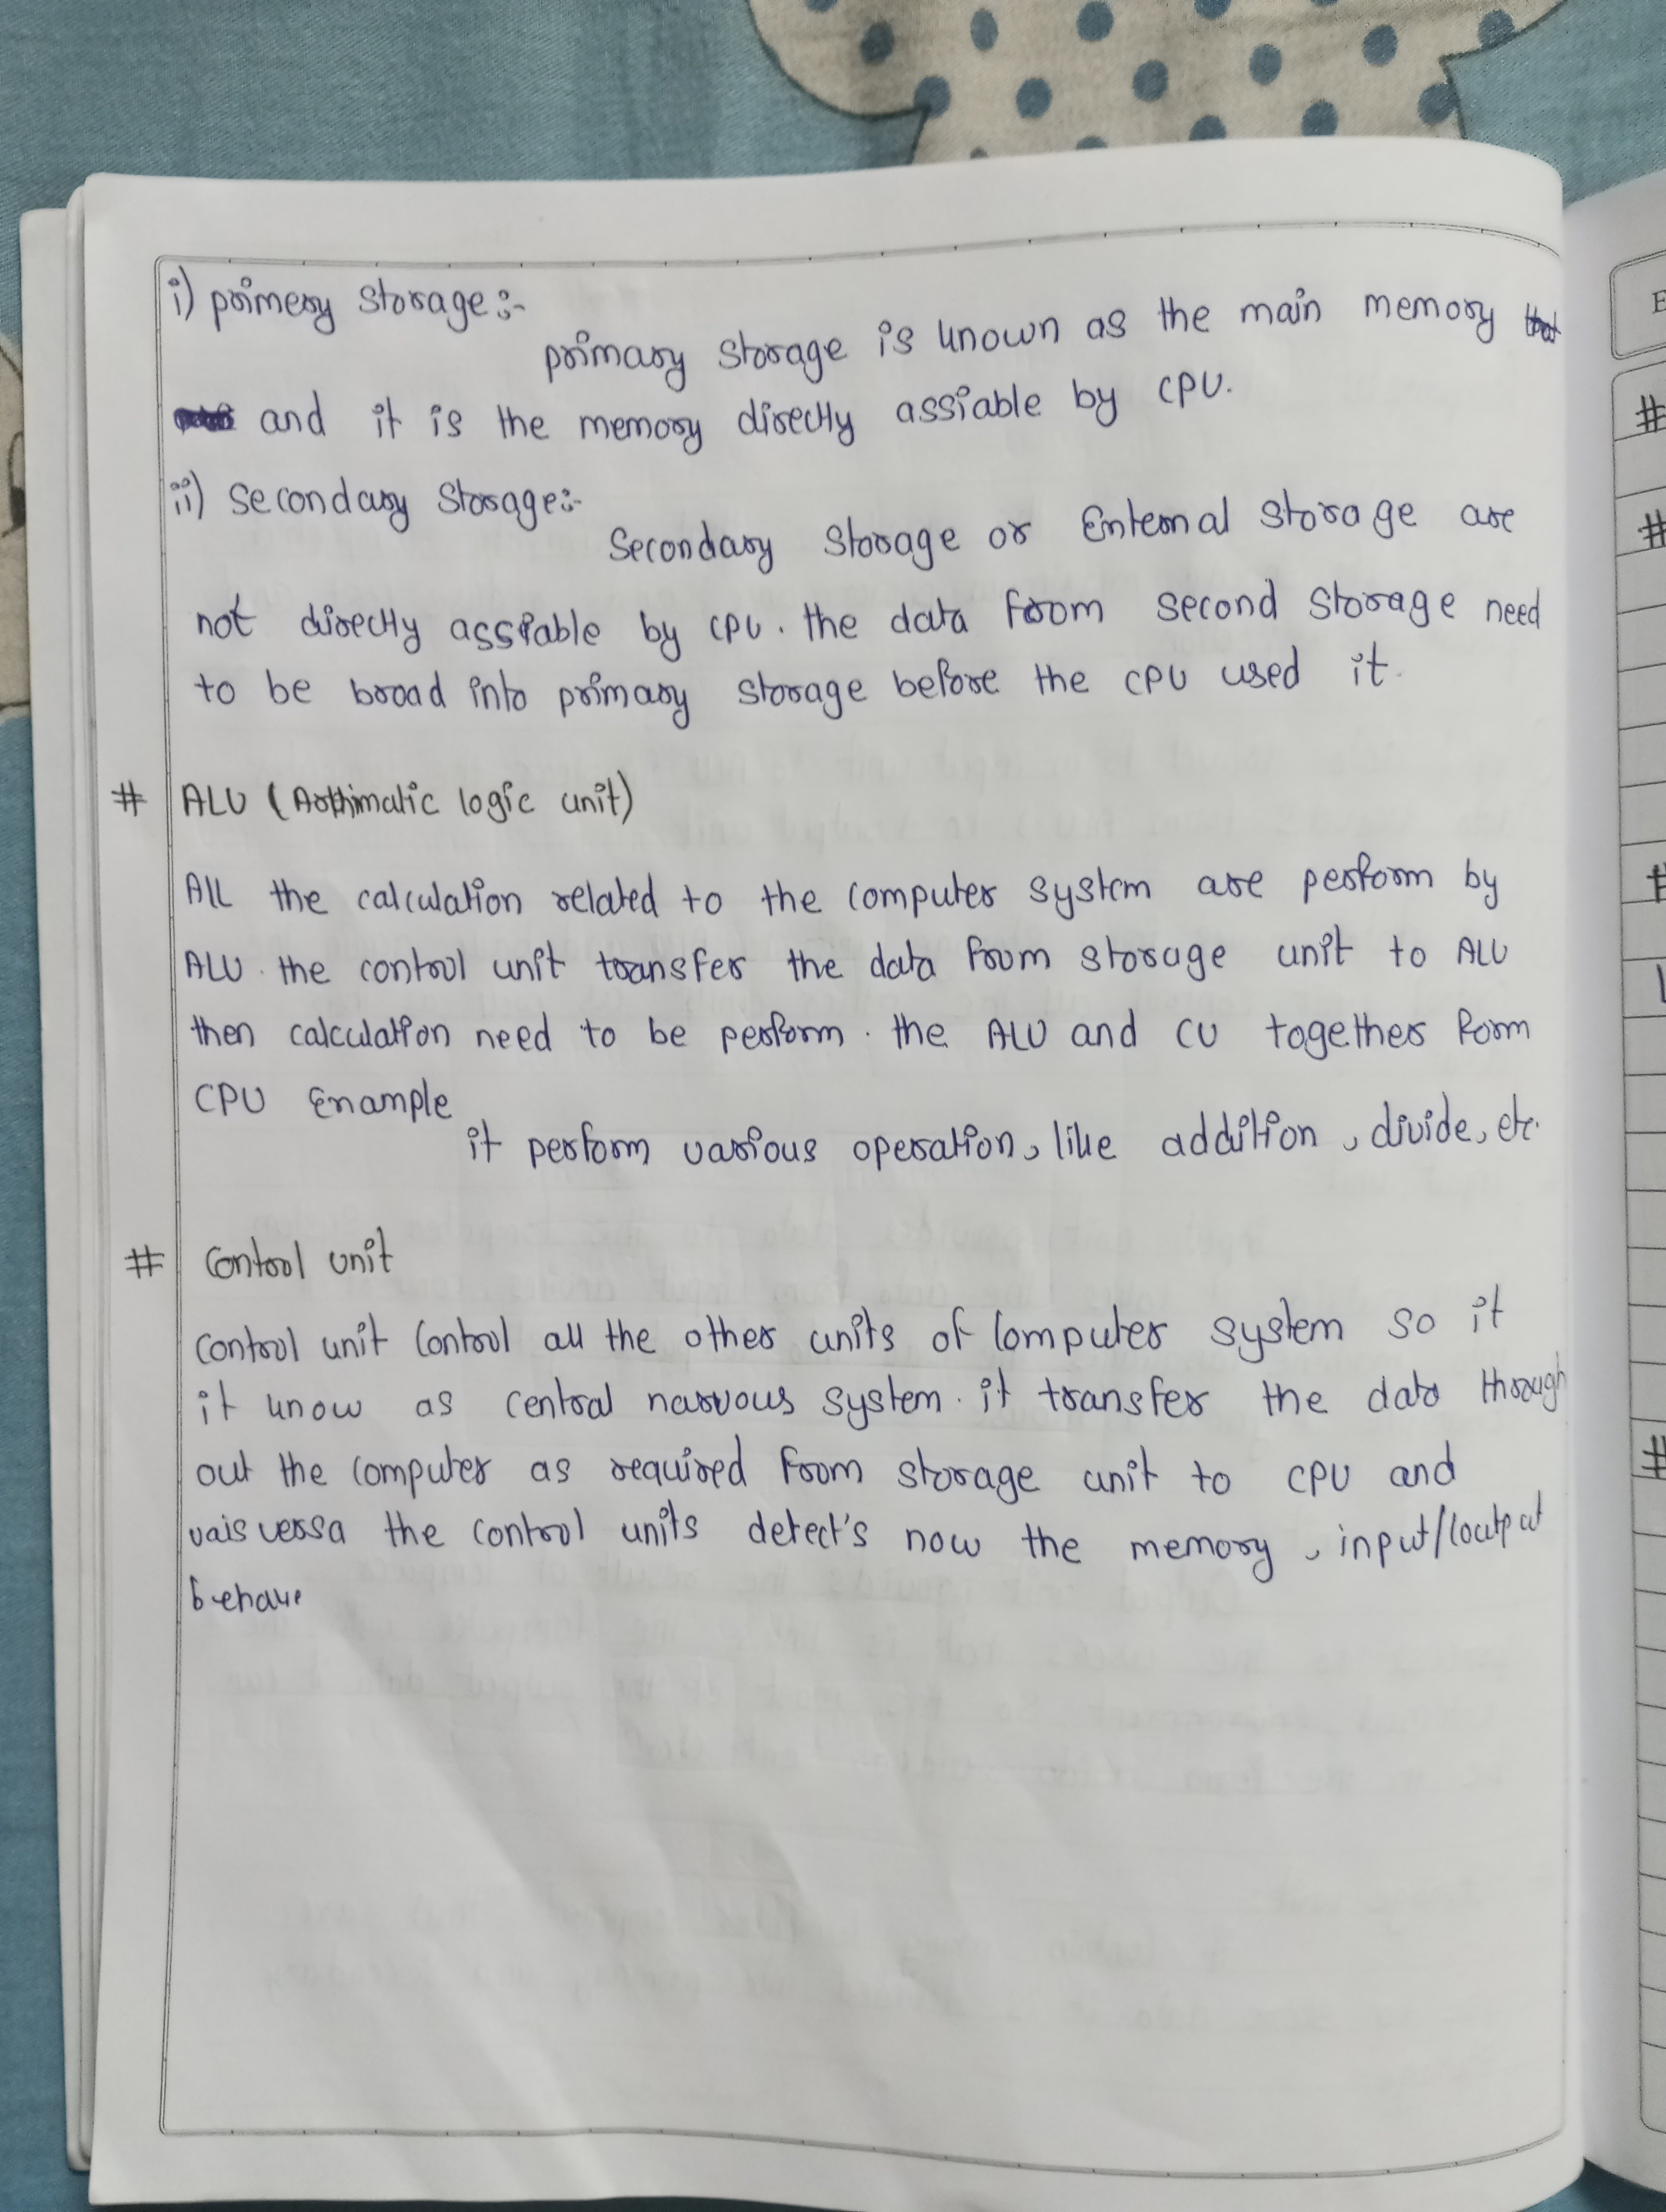 i) primery storage:-
primary storage is known as the main memory
and it is the memory directly assiable by CPU.
ii) Secondary Storage:-
Secondary Storage or External storage are
not directly assiable by CPU. the data from second storage need
to be broad into primary storage before the CPU used it.
# ALU (Arthimatic logic unit)
All the calculation related to the computer system are perform by
ALU. the control unit transfer the data from storage unit to ALU
then calculation need to be perform. the ALU and CU together form
CPU Example
it perform various operation, like addition, divide, etc.
# Control unit
control unit control all the other units of computer system so it
it know as central narvous system. it transfer the data through
out the computer as required from storage unit to CPU and
vais versa the control units detect's how the memory, input/output
behave